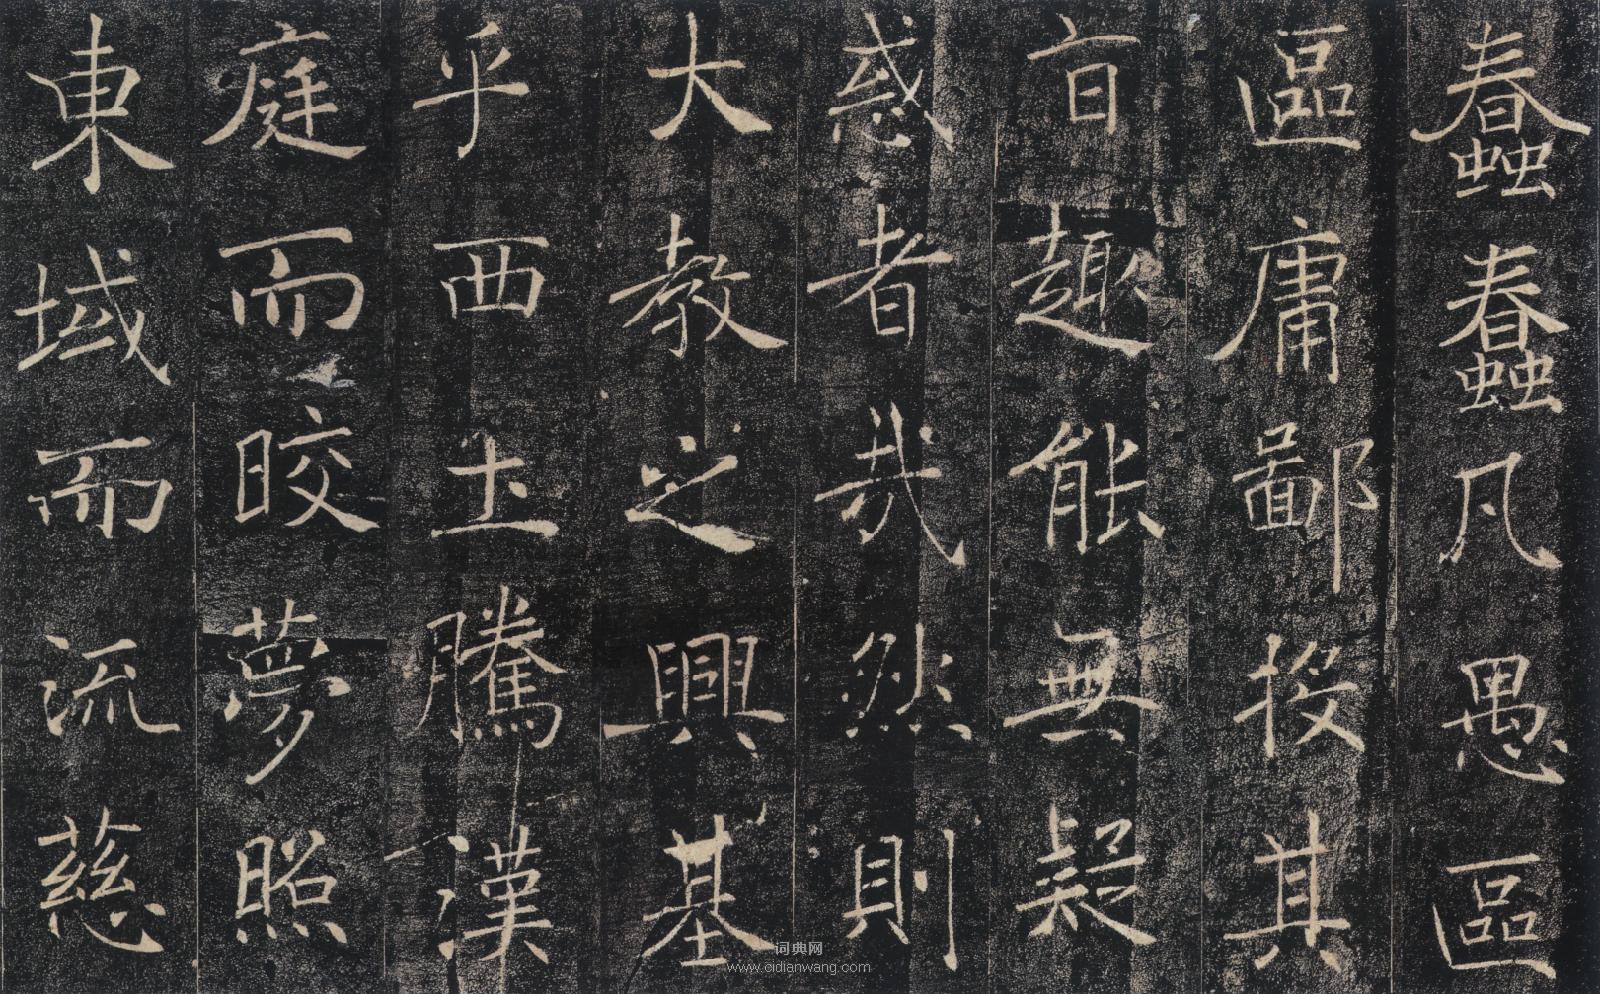 蠢蠢凡愚區
區庸鄙投其
旨趣能無疑
惑者哉然則
大教之興基
乎西土騰漢
庭而皎夢照
東域而流慈
词典网
www.cidianwang.com